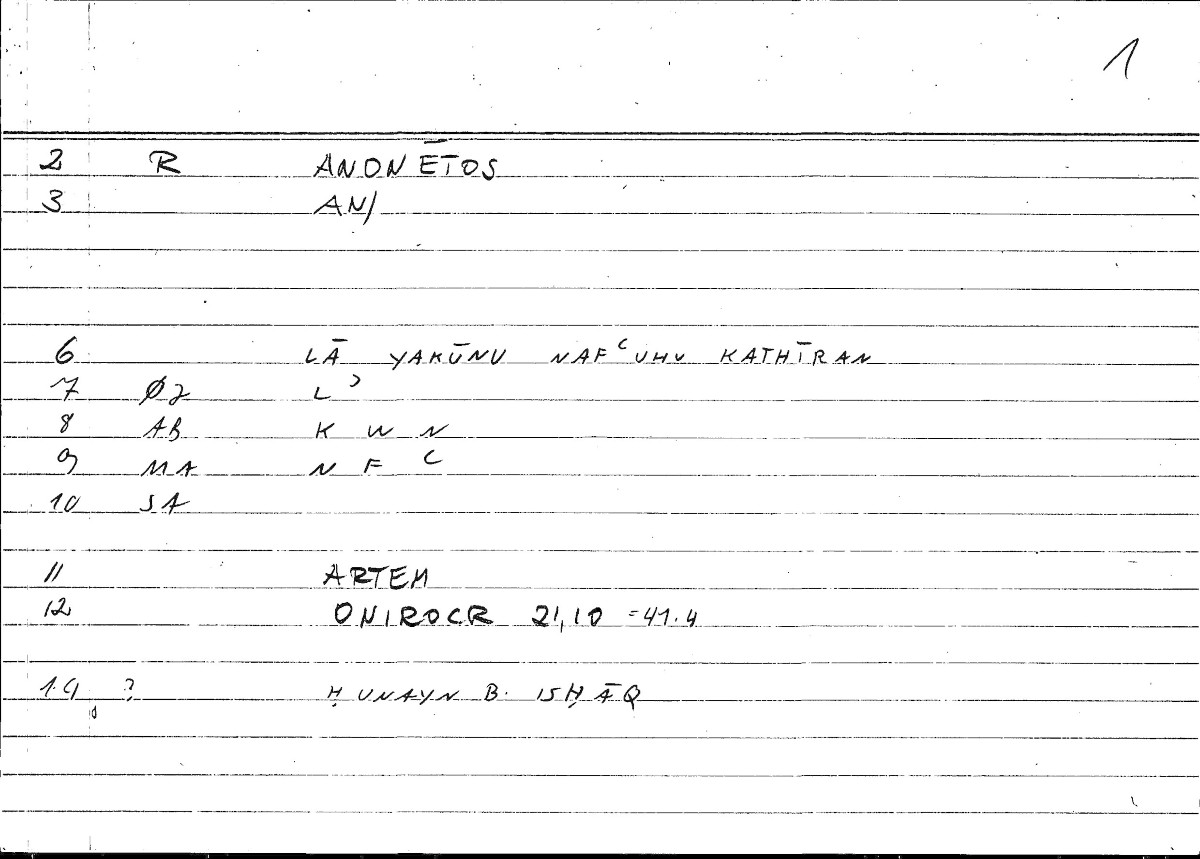 1
2 R ANONĒTOS
3 AN/
6 LĀ YAKŪNU NAFʿUHU KATHĪRAN
7 ØJ Lʾ
8 AB K W N
9 MA N F ʿ
10 SA
11 ARTEM
12 ONIROCR 21,10 =41.4
19 ? ḤUNAYN B. ISḤĀQ